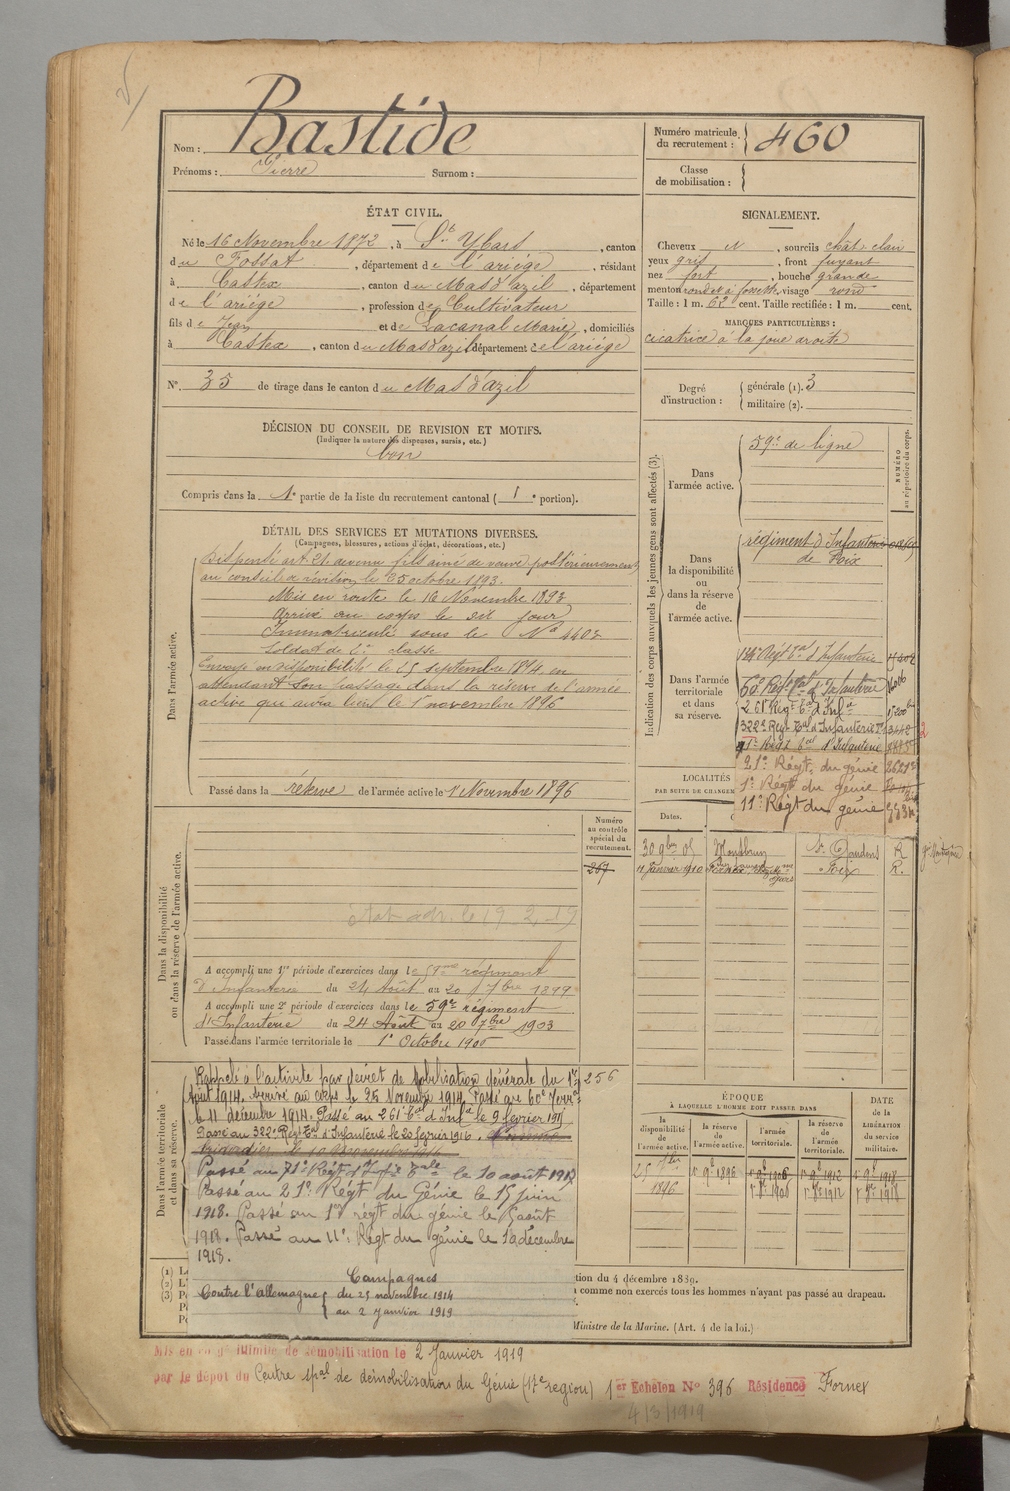 Nom : Bastide
Prénoms : Pierre Surnom :
Numéro matricule du recrutement : 460
Classe de mobilisation :
ÉTAT CIVIL.
Né le 16 Novembre 1872, à St Ybars, canton
du Fossat, département de l'ariége, résidant
à Castex, canton du Mas d'azil, département
de l'ariége, profession de Cultivateur
fils de Jean et de Lacanal Marie, domiciliés
à Castex, canton du Mas d'azil département de l'ariége
N° 35 de tirage dans le canton du Mas d'azil
SIGNALEMENT.
Cheveux N, sourcils chât clair
yeux gris, front fuyant
nez fort, bouche grande
menton rond et à fossette visage rond
Taille : 1 m. 62 cent. Taille rectifiée : 1 m. cent.
MARQUES PARTICULIÈRES :
cicatrice à la joue droite
Degré d'instruction :
générale (1). 3
militaire (2).
DÉCISION DU CONSEIL DE REVISION ET MOTIFS.
(Indiquer la nature des dispenses, sursis, etc.)
bon
Compris dans la 1e partie de la liste du recrutement cantonal (1e portion).
DÉTAIL DES SERVICES ET MUTATIONS DIVERSES.
(Campagnes, blessures, actions d'éclat, décorations, etc.)
Dans l'armée active.
Dispensé art 21. devenu fils ainé de veuve postérieurement
au conseil de révision le 25 octobre 1893.
Mis en route le 16 Novembre 1893
Arrivé au corps le dit jour
Immatriculé sous le N° 4403
Soldat de 2e classe
Envoyé en disponibilité le 25 septembre 1894 en
attendant son passage dans la réserve de l'armée
active qui aura lieu le 1er novembre 1896
Passé dans la réserve de l'armée active le 1er Novembre 1896
Indication des corps auxquels les jeunes gens sont affectés (3).
NUMÉRO au répertoire du corps.
Dans l'armée active.
59e de ligne
Dans la disponibilité ou dans la réserve de l'armée active.
régiment d'Infanterie
de Foix
Dans l'armée territoriale et dans sa réserve.
Régt Tal d'Infanterie
60e Régt Tal d'Infanterie
261e Régt Tal d'Infie
322e Régt Tal d'Infanterie
71e Régt Tal d'Infanterie
21e Régt du génie
1er Régt du génie
11e Régt du génie
LOCALITÉS
PAR SUITE DE CHANGEM
Dates.
30 9bre 05 Montbrun St Girons R
11 Janvier 1910 Foix R.
Dans la disponibilité ou dans la réserve de l'armée active.
Numéro au contrôle spécial du recrutement.
267
A accompli une 1re période d'exercices dans le 59me régiment
d'Infanterie du 24 Août au 20 7bre 1899
A accompli une 2e période d'exercices dans le 59e régiment
d'Infanterie du 24 Août au 20 7bre 1903
Passé dans l'armée territoriale le 1er Octobre 1906
Dans l'armée territoriale et dans sa réserve.
Rappelé à l'activité par décret de mobilisation générale du 1er 256
Août 1914. Arrivé au corps le 25 Novembre 1914. Passé au 60e Terr
le 11 décembre 1914. Passé au 261e Tal d'Infie le 9 février 1915
Passé au 322e Régt Tal d'Infanterie le 20 février 1916.
Passé au 71e Régt d'Infie Tale le 10 août 1917
Passé au 21e Régt du Génie le 15 juin
1918. Passé au 1er régt du génie le 5 août
1918. Passé au 11e Régt du génie le 10 décembre
1918.
Campagnes
Contre l'allemagne du 25 novembre 1914
au 2 janvier 1919
ÉPOQUE
À LAQUELLE L'HOMME DOIT PASSER DANS
la disponibilité de l'armée active.
la réserve de l'armée active.
l'armée territoriale.
la réserve de l'armée territoriale.
DATE de la LIBÉRATION du service militaire.
1er 9bre 1896
1er 9bre 1906
1er 9bre 1912
1er 9bre 1918
(1)
(2)
(3)
tion du 4 décembre 1889.
comme non exercés tous les hommes n'ayant pas passé au drapeau.
Ministre de la Marine. (Art. 4 de la loi.)
Mis en congé illimité de démobilisation le 2 Janvier 1919
par le dépôt du Centre spal de démobilisation du Génie (17e région) 1er Echelon N° 396 Résidence Fornex
4/3/1919